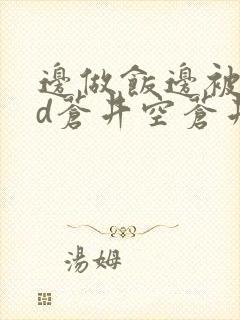 邊做飯邊被
d蒼井空蒼井
湯姆